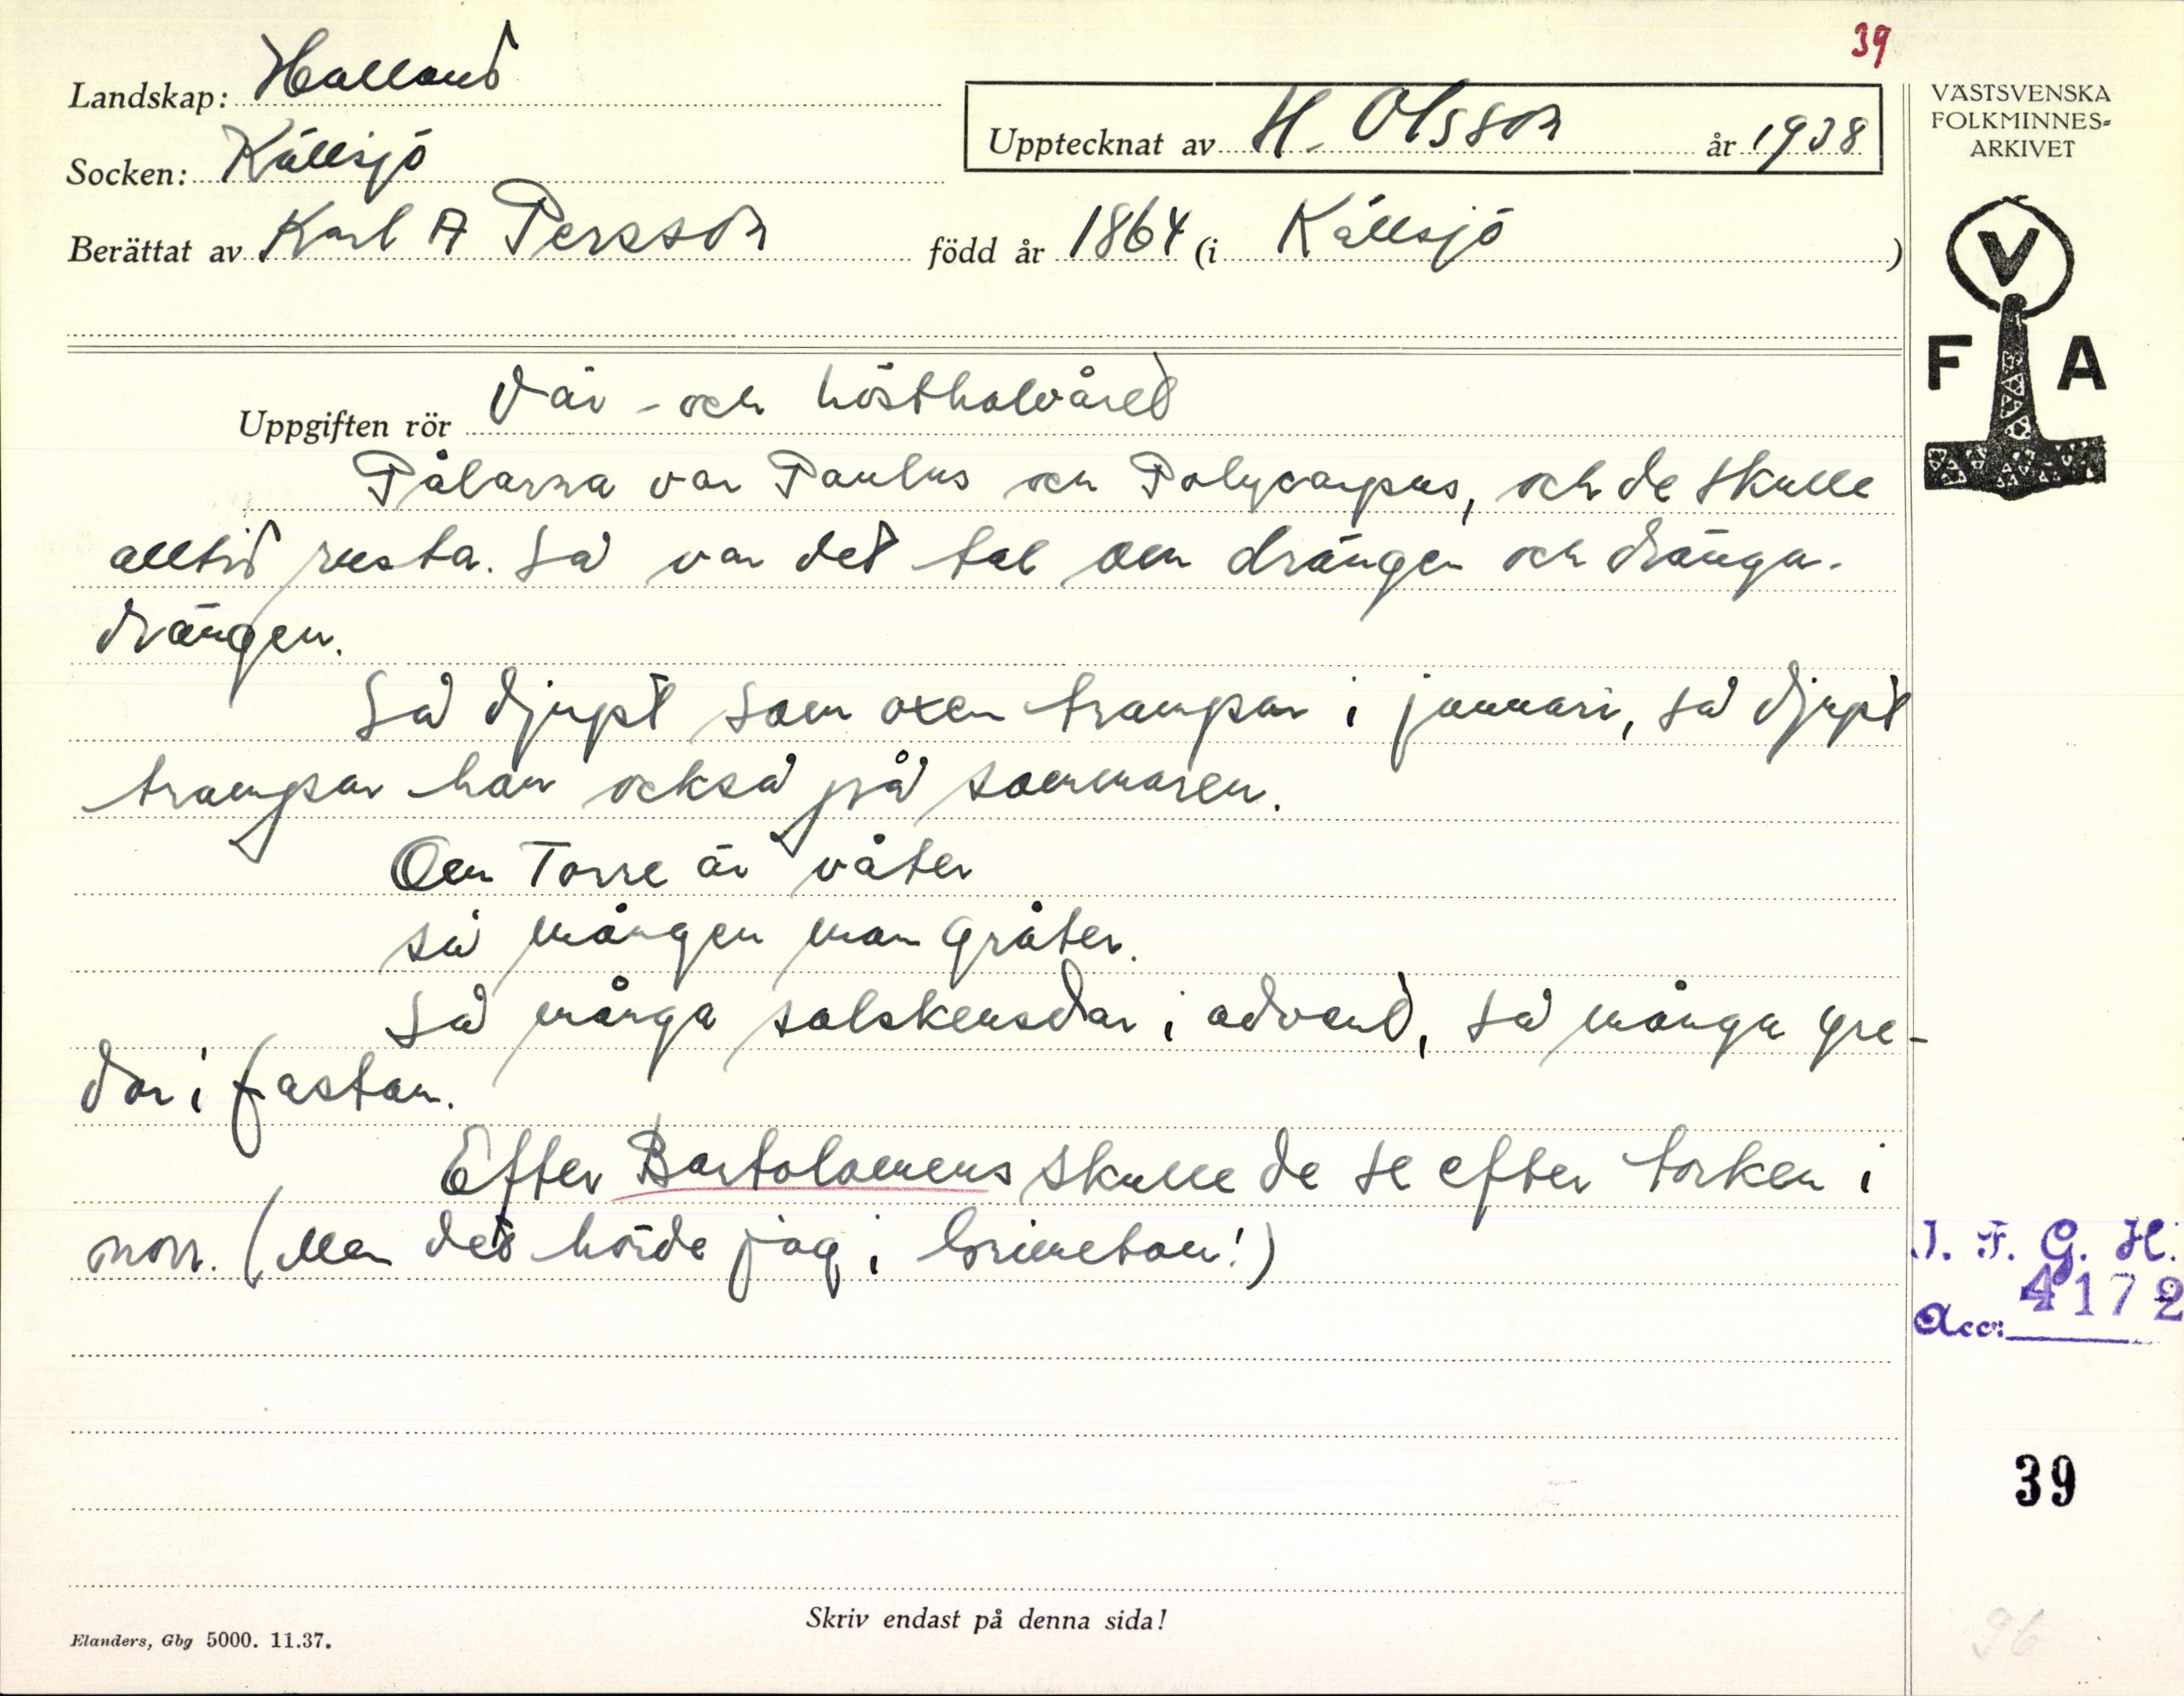 39
Landskap: Halland
Socken: Källsjö
Upptecknat av H. Olsson år 1938
Berättat av Karl A Persson född år 1864 (i Källsjö)
VÄSTSVENSKA
FOLKMINNES-
ARKIVET
V
F A
Uppgiften rör Vår- och hösthalvåret
Pålarna var Paulus och Polycarpus, och de skulle
alltid rusta. Så var det tal om drängen och dränga-
drängen.
Så djupt som oxen trampar i januari, så djupt
trampar han också på sommaren.
Om Torre är våter
så mången man gråter.
Så många solskensdar i advent, så många gre-
dar i fastan.
Efter Bartolomeus skulle de se efter torken i
norr. (Men det hörde jag i Grimeton!)
I. F. G. H.
4172
Acc:
39
Skriv endast på denna sida!
Elanders, Gbg 5000. 11.37.
96